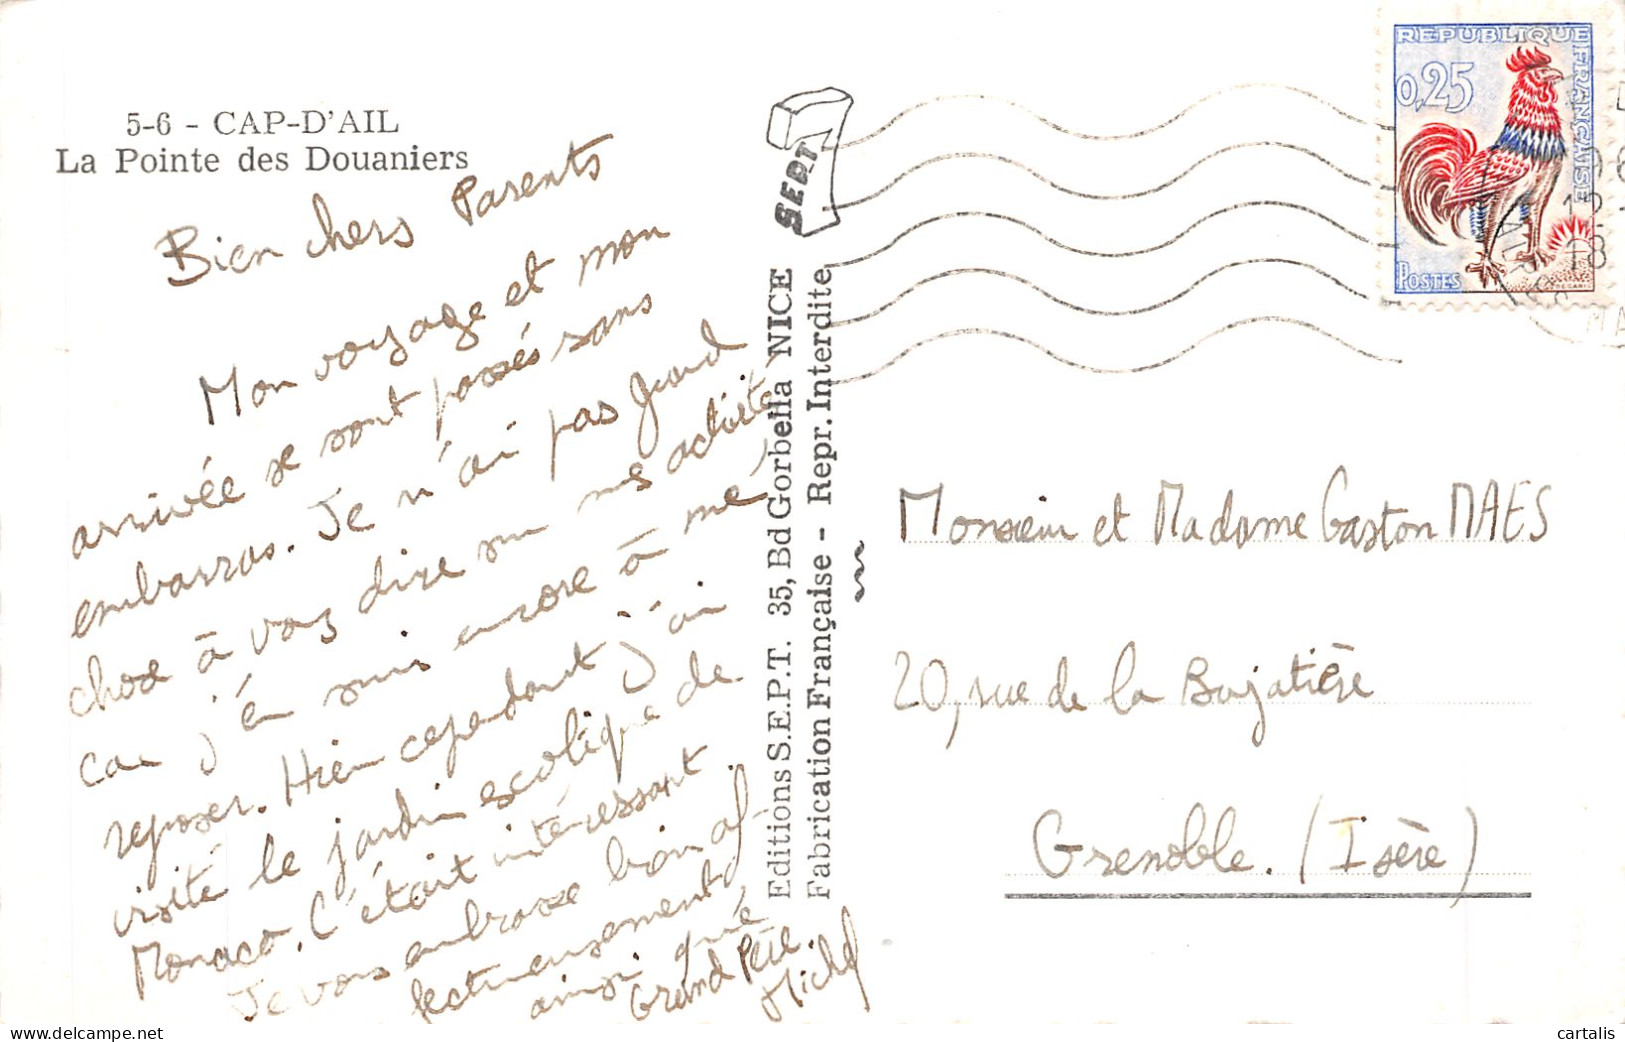 5-6 - CAP-D'AIL
La Pointe des Douaniers
Bien chers Parents
Mon voyage et mon
arrivée se sont passés sans
embarras. Je n'ai pas grand
chose à vous dire sur mes activités
car j'en suis encore à me
reposer. Hier cependant j'ai
visité le jardin exotique de
Monaco. C'était intéressant.
Je vous embrasse bien af-
fectueusement
ainsi que
Grand Père.
Michel
SEPT
Editions S.E.P.T. 35, Bd Gorbella NICE
Fabrication Française - Repr. Interdite
REPUBLIQUE FRANÇAISE
0,25
POSTES
Monsieur et Madame Gaston MAES
20, rue de la Bajatière
Grenoble. (Isère)
cartalis